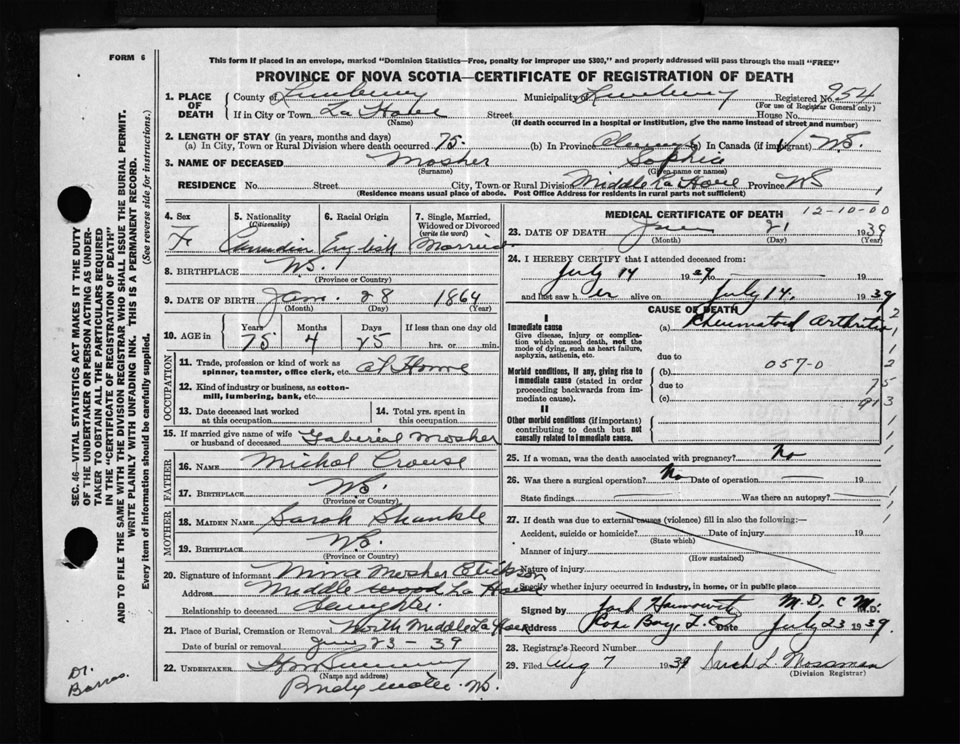 FORM 6
This form if placed in an envelope, marked "Dominion Statistics—Free, penalty for improper use $300," and properly addressed will pass through the mail "FREE"
PROVINCE OF NOVA SCOTIA—CERTIFICATE OF REGISTRATION OF DEATH
1. PLACE OF DEATH
County of Lunenburg Municipality of Lunenburg Registered No. 954
(For use of Registrar General only)
If in City or Town La Have Street House No.
(Name) (If death occurred in a hospital or institution, give the name instead of street and number)
2. LENGTH OF STAY (in years, months and days)
(a) In City, Town or Rural Division where death occurred 75. (b) In Province Always (c) In Canada (if immigrant) N.S.
3. NAME OF DECEASED Mosher Sophia
(Surname) (Given name or names)
RESIDENCE No. Street City, Town or Rural Division Middle La Have Province NS
(Residence means usual place of abode. Post Office Address for residents in rural parts not sufficient)
4. Sex
Fe
5. Nationality
(Citizenship)
Canadian
6. Racial Origin
English
7. Single, Married, Widowed or Divorced
(write the word)
Married
8. BIRTHPLACE N.S.
(Province or Country)
9. DATE OF BIRTH Jan. 28 1864
(Month) (Day) (Year)
10. AGE in
Years Months Days If less than one day old
75 4 25 hrs. or min.
OCCUPATION
11. Trade, profession or kind of work as spinner, teamster, office clerk, etc. at Home
12. Kind of industry or business, as cotton-mill, lumbering, bank, etc.
13. Date deceased last worked at this occupation
14. Total yrs. spent in this occupation
15. If married give name of wife or husband of deceased Gaberial Mosher
FATHER
16. NAME Michal Crouse
17. BIRTHPLACE N.S.
(Province or Country)
MOTHER
18. MAIDEN NAME Sarah Shankle
19. BIRTHPLACE N.S.
(Province or Country)
20. Signature of informant Nina Mosher
Address Middle wood La Have
Relationship to deceased Daughter.
21. Place of Burial, Cremation or Removal North Middle La Have
Date of burial or removal June 23 - 39
22. UNDERTAKER
(Name and address)
N.S.
MEDICAL CERTIFICATE OF DEATH
12-10-00
23. DATE OF DEATH June 21 1939
(Month) (Day) (Year)
24. I HEREBY CERTIFY that I attended deceased from:
July 14 19 — 19
and last saw her alive on July 14. 1939
CAUSE OF DEATH
I
Immediate cause
Give disease, injury or complication which caused death, not the mode of dying, such as heart failure, asphyxia, asthenia, etc.
(a) Rheumatoid Arthritis
due to
Morbid conditions, if any, giving rise to immediate cause (stated in order proceeding backwards from immediate cause).
(b) 057-0
due to
(c)
II
Other morbid conditions (if important) contributing to death but not causally related to immediate cause.
2
75
913
25. If a woman, was the death associated with pregnancy? No
26. Was there a surgical operation? No Date of operation — 19
State findings — Was there an autopsy? —
27. If death was due to external causes (violence) fill in also the following:—
Accident, suicide or homicide? Date of injury 19
(State which)
Manner of injury
(How sustained)
Nature of injury
Specify whether injury occurred in industry, in home, or in public place
Signed by M.D. C M. M.D.
Address Rose Bay, L. Co. Date July 23 1939.
28. Registrar's Record Number
29. Filed Aug 7 1939 Sarah L. Mossman
(Division Registrar)
SEC. 46—VITAL STATISTICS ACT MAKES IT THE DUTY
OF THE UNDERTAKER OR PERSON ACTING AS UNDER-
TAKER TO OBTAIN ALL THE PARTICULARS REQUIRED
IN THE "CERTIFICATE OF REGISTRATION OF DEATH"
AND TO FILE THE SAME WITH THE DIVISION REGISTRAR WHO SHALL ISSUE THE BURIAL PERMIT.
WRITE PLAINLY WITH UNFADING INK. THIS IS A PERMANENT RECORD.
Every item of information should be carefully supplied. (See reverse side for instructions.)
Dr.